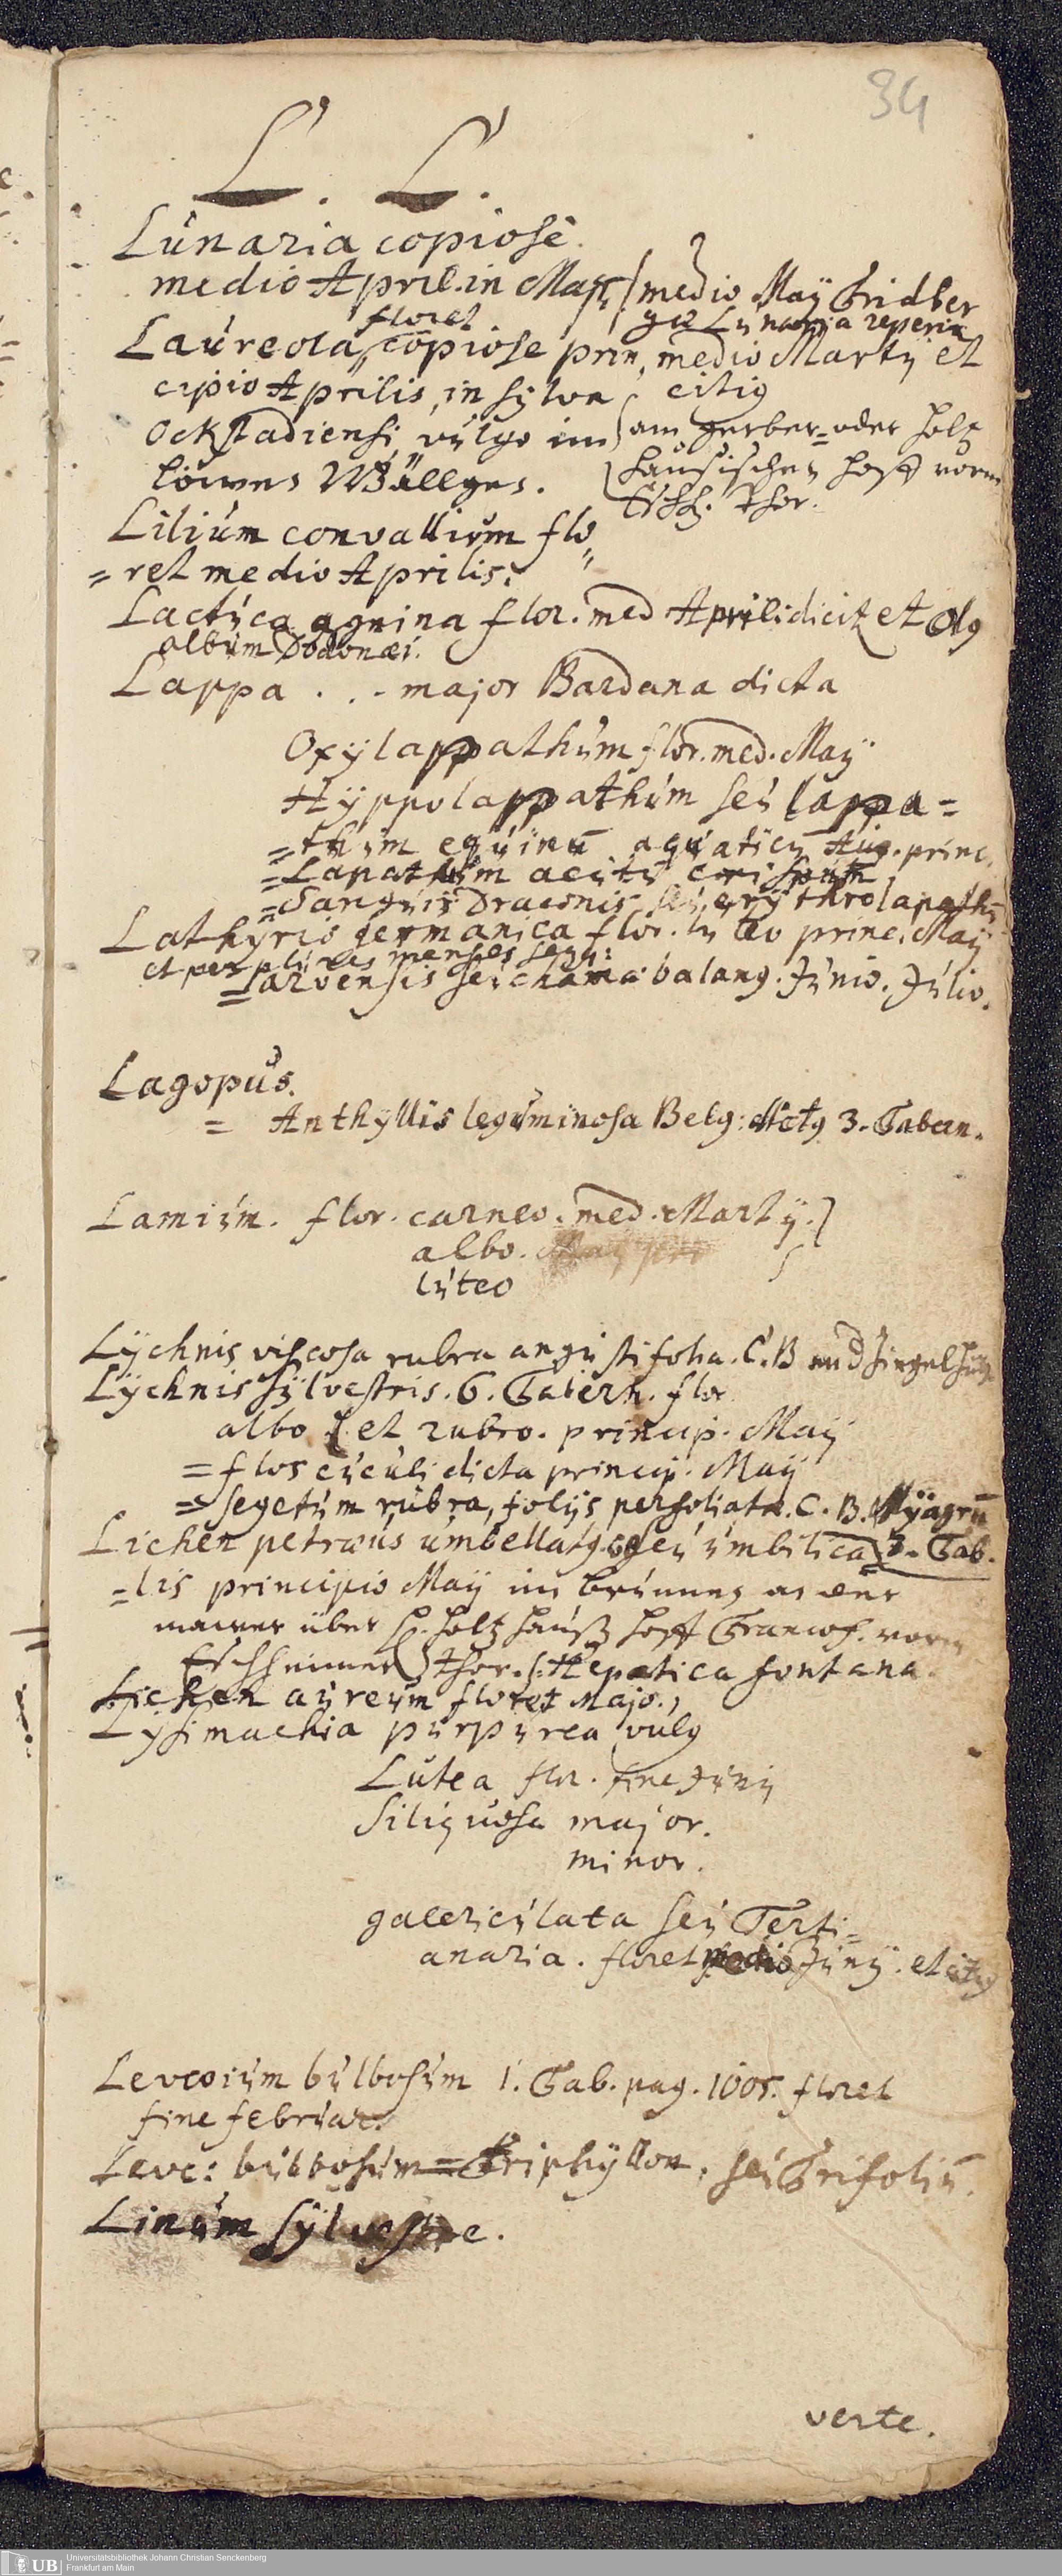 34
L. L.
Lunaria copiose.
medio April. in Maji / medio Maÿ Fridber
gæ Lunaria reperit
floret
Laureola copiose prin, medio Martÿ et
cipio Aprilis, in sylva citig
Ockstadiensi vulgo im am gerber= oder holtz
löwens Wällges. hausischen hoff vorm
Esch. thor.
Lilium convallium flo
=ret medio Aprilis.
Lactuca agnina flor. med Aprili dicit et olg
album Dodonæi.
Lappa . . - major Bardana dicta
Oxylappathum flor. med. Maÿ
Hÿppolappathum seu lappa=
=thum equinū aquaticū Aug. princ.
=Lapathum acutū crispum
=Sanguis Draconis seu erÿthrolapathū
Lathÿris germanica flor. luteo princ. Maÿ
et per plures menses sequ:
=arvensis seu chamæbalang. Junio. Julio.
Lagopus.
= Anthyllis leguminosa Belg: 3. Tabern.
Lamium. flor. carneo. med. Martÿ.
albo.
luteo
Lÿchnis viscosa rubra angustifolia. C. B
Lÿchnis sÿlvestris. 6. Tabern. flor
albo et rubro. princip. Maÿ
=flos cuculi dicta princip. Maÿ
=segetum rubra, folijs perfoliatæ. C. B. Mÿagrū
Lichen petræus umbellatg seu umbilica 3. Tab.
=lis principio Maÿ im brunnen an der
mauer über H. Holtzhauß hoff Francof. vorm
Eschheimer thor. /: Hepatica fontana.
Lichen aureum floret Majo.
Lysimachia purpurea vulg
Lutea flor. fine Junij
Siliquosa major.
minor.
galericulata seu Terti=
anaria. floret medio Junÿ. et citg
Levcoium bulbosum 1. Tab. pag. 1005. floret
fine februar.
Levc: bulbosum=Triphyllon, seu Trifoliū.
Linum sÿlvestre.
verte.
UB Universitätsbibliothek Johann Christian Senckenberg
Frankfurt am Main